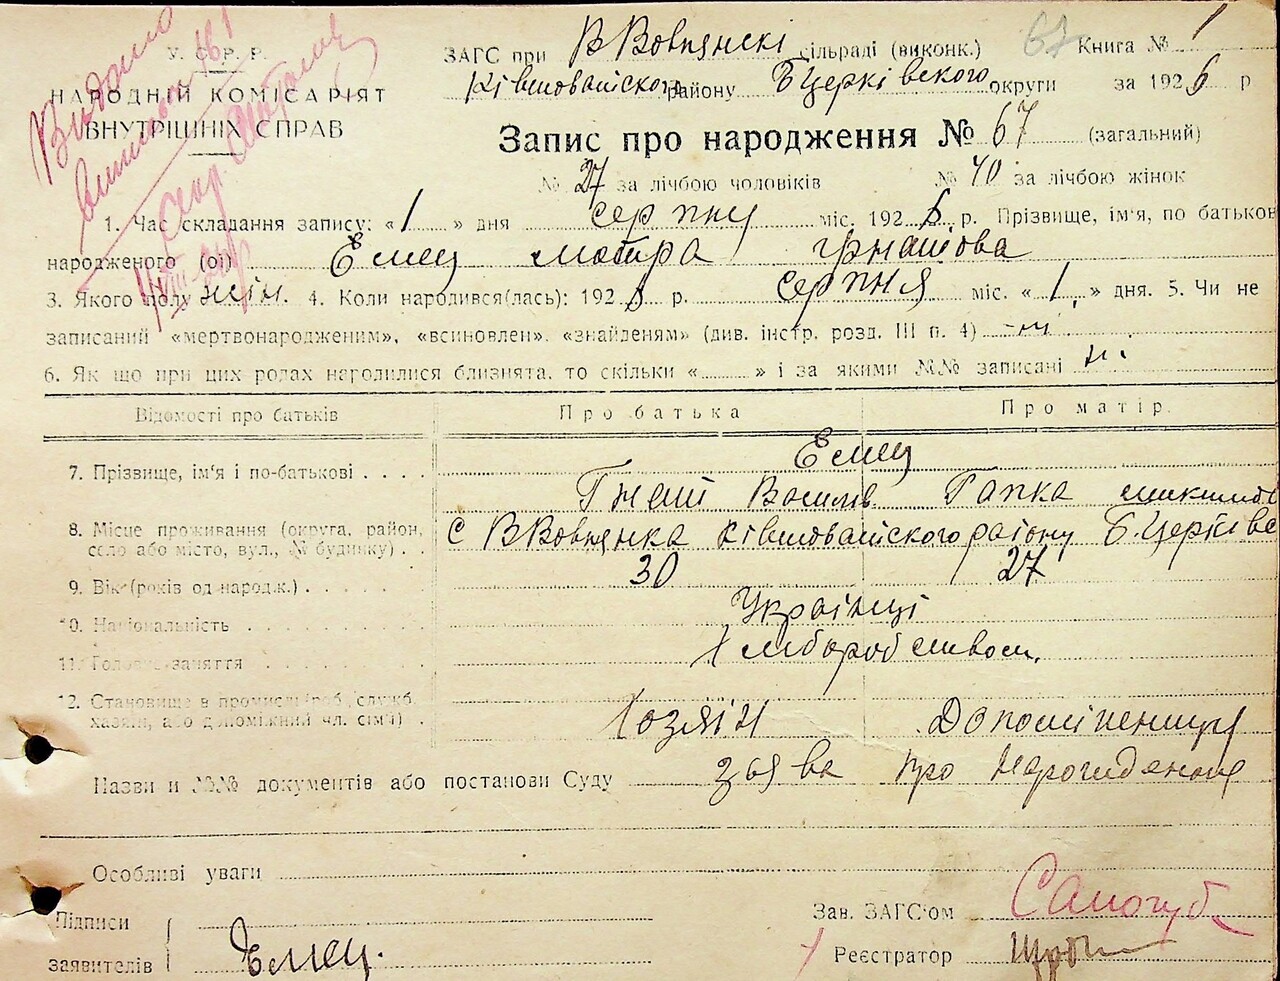 У. С.Р. Р.
НАРОДНІЙ КОМІСАРІЯТ
ВНУТРІШНІХ СПРАВ
ЗАГС при В Вовнянскі сільраді (виконк.) 67 Книга № 1
району БЦерківского округи за 1926 р
Запис про народження № 67 (загальний)
№ 27 за лічбою чоловіків № 40 за лічбою жінок
1. Час складання запису: «1» дня серпня міс. 1926 р. Прізвище, ім'я, по батьков
народженого (ої) Емец
3. Якого полу жін. 4. Коли народився(лась): 192 р. серпня міс. «1» дня. 5. Чи не
записаний «мертвонародженим», «всиновлен», «знайденям» (див. інстр. розд. III п. 4) – ні
6. Як що при цих родах народилися близнята, то скільки «......» і за якими №№ записані ні
Відомості про батьків Про батька Про матір.
Емец
7. Прізвище, ім'я і по-батькові . . . . Гнат Василів Гапка
8. Місце проживання (округа, район, с ВВовнянка району Б.Церківс
село або місто, вул., № будинку) . .
9. Вік (років од народж.) . . . . . . 30 27
10. Національність . . . . . . . . . Українці
11. Головне заняття . . . . . . . . Хлібороб
12. Становище в промислі (роб., служб.
хазяїн, або допоміжний чл. сім'ї) . Хозяін
Назви и №№ документів або постанови Суду заява про
Особливі уваги
Підписи
заявителів Емец.
Зав. ЗАГС'ом Самогуб
Реєстратор